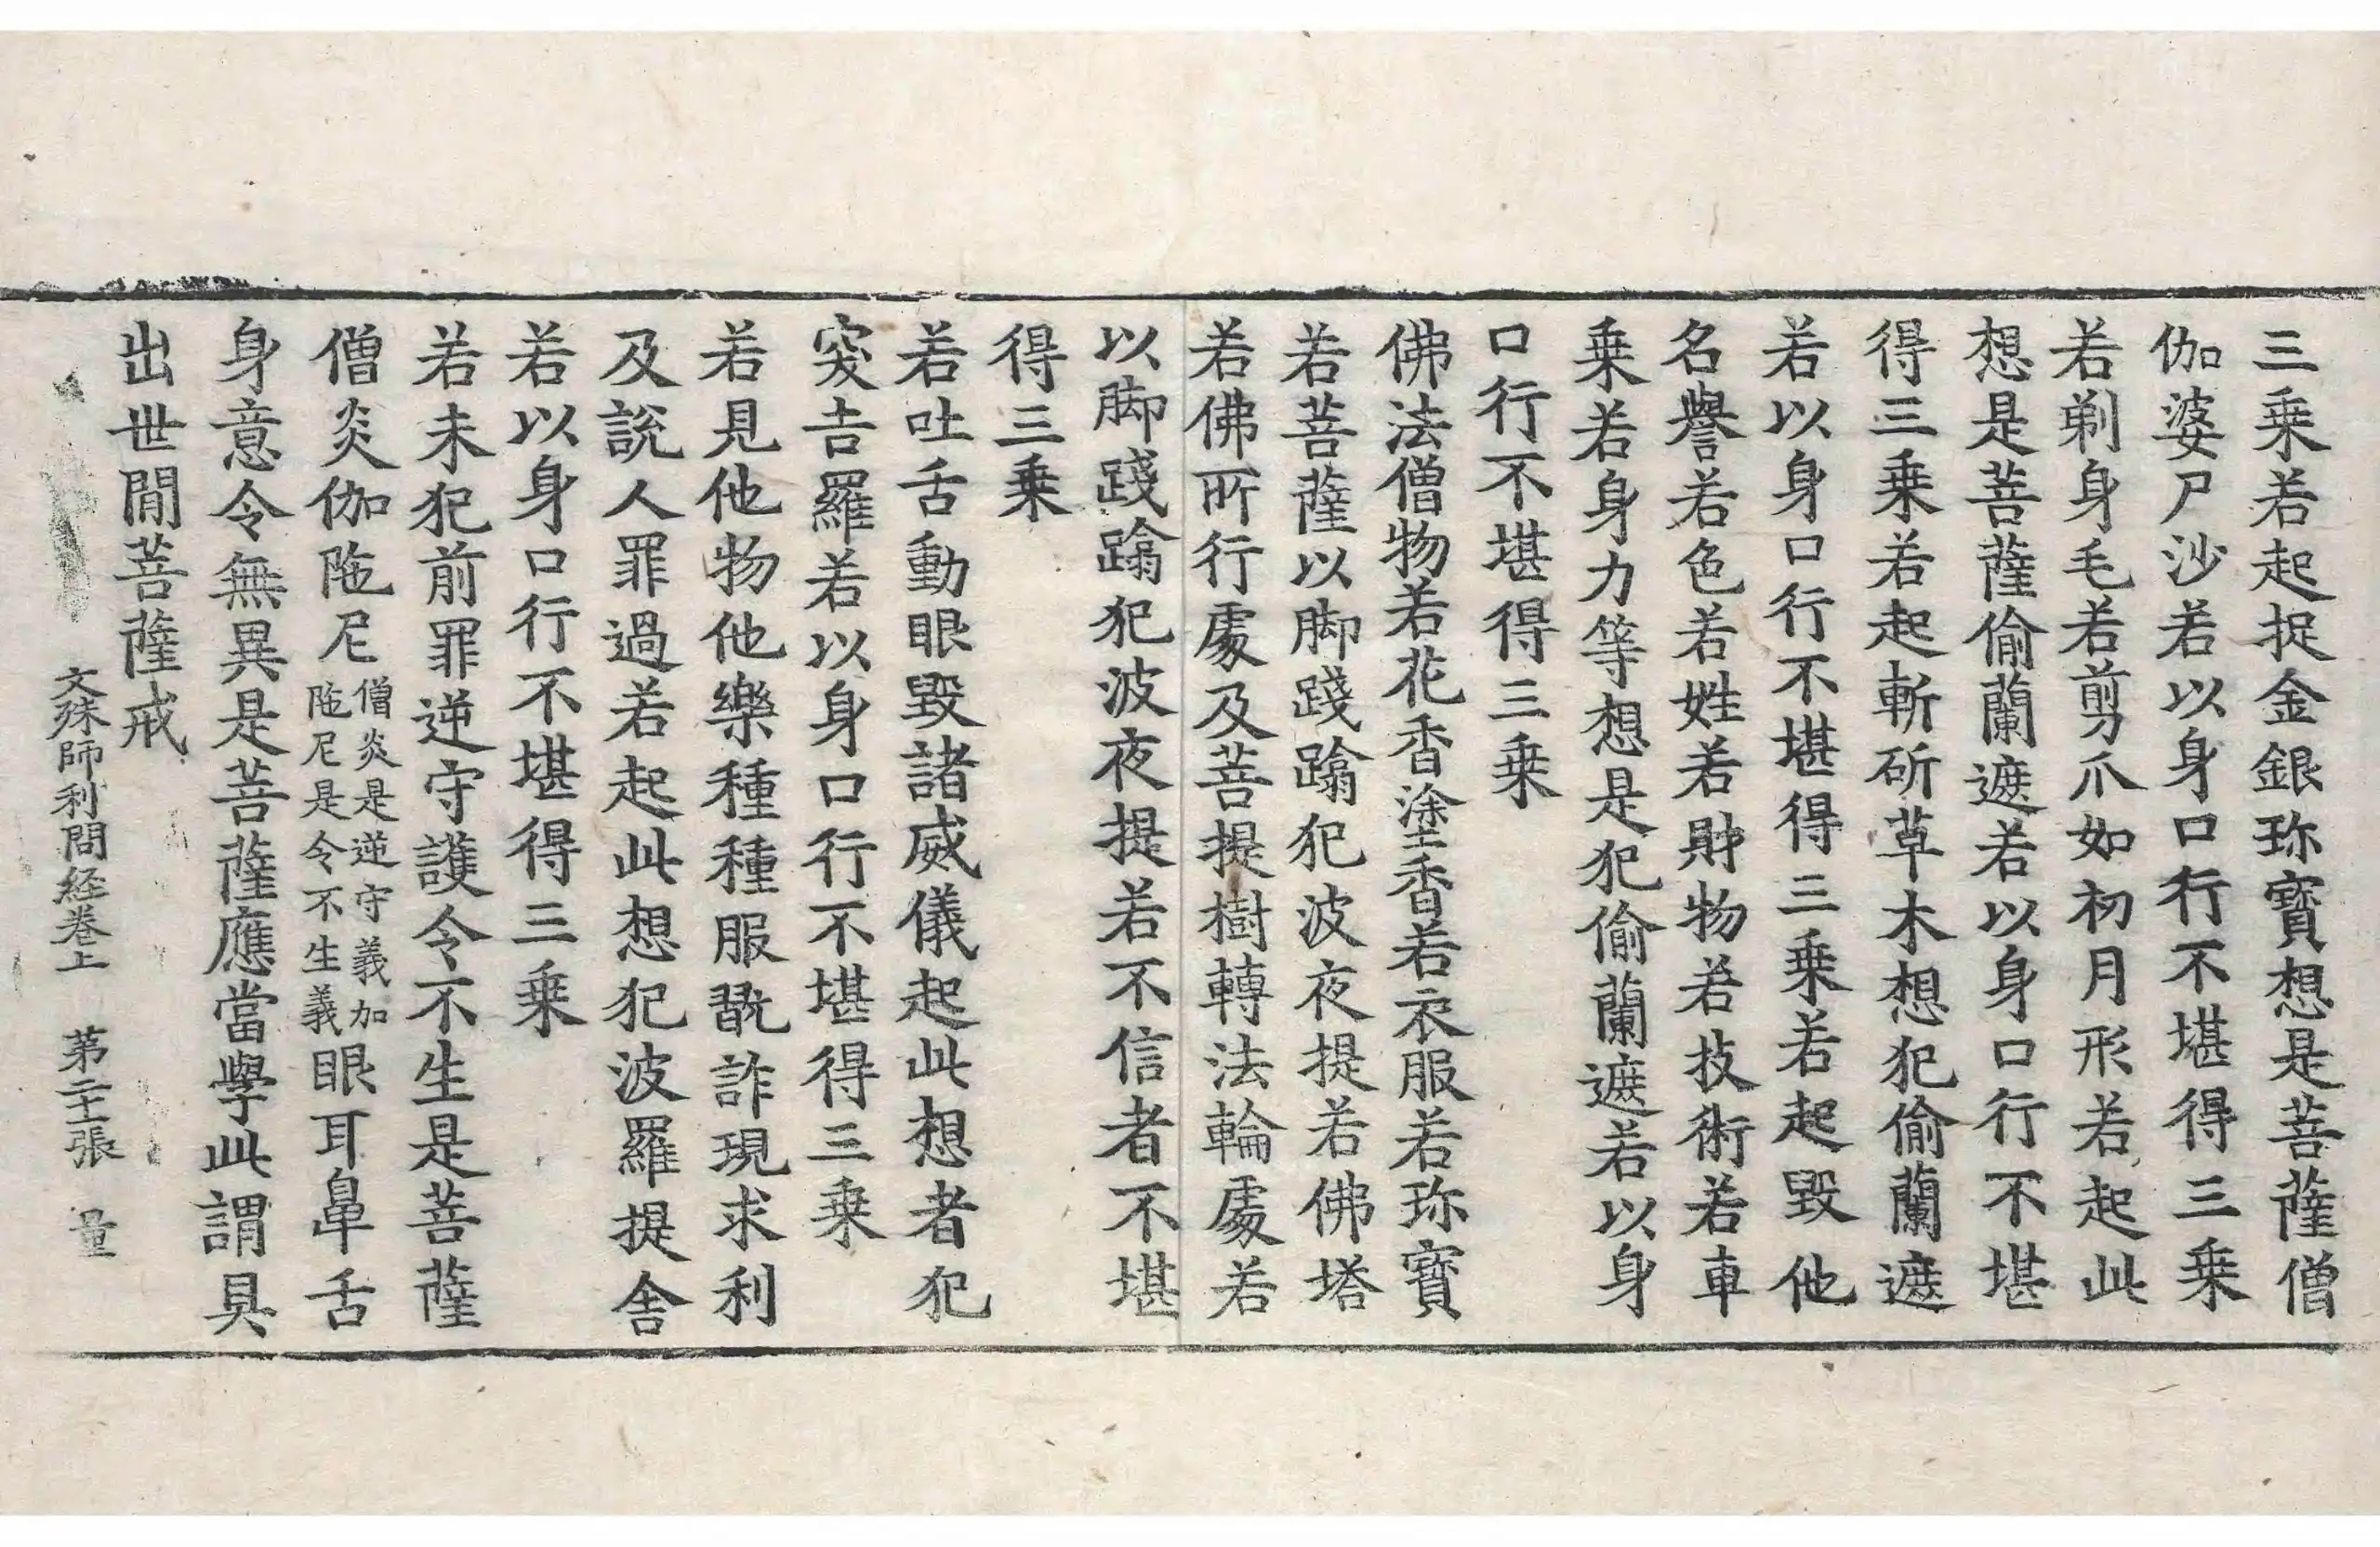 三乗若起捉金銀珎寶想是菩薩僧
伽婆尸沙若以身口行不堪得三乗
若剃身毛若剪爪如初月形若起此
想是菩薩偷蘭遮若以身口行不堪
得三乗若起斬斫草木想犯偷蘭遮
若以身口行不堪得三乗若起毀他
名譽若色若姓若財物若技術若車
乗若身力等想是犯偷蘭遮若以身
口行不堪得三乗
佛法僧物若花香塗香若衣服若珎寶
若菩薩以脚踐蹹犯波夜提若佛塔
若佛所行處及菩提樹轉法輪處若
以脚踐蹹犯波夜提若不信者不堪
得三乗
若吐舌動眼毀諸威儀起此想者犯
突吉羅若以身口行不堪得三乗
若見他物他樂種種服翫詐現求利
及說人罪過若起此想犯波羅提舍
若以身口行不堪得三乗
若未犯前罪逆守護令不生是菩薩
僧炎伽陁尼僧炎是逆守義加陁尼是令不生義眼耳鼻舌
身意令無異是菩薩應當學此謂具
出世閒菩薩戒
文殊師利問経卷上 第二十二張 量